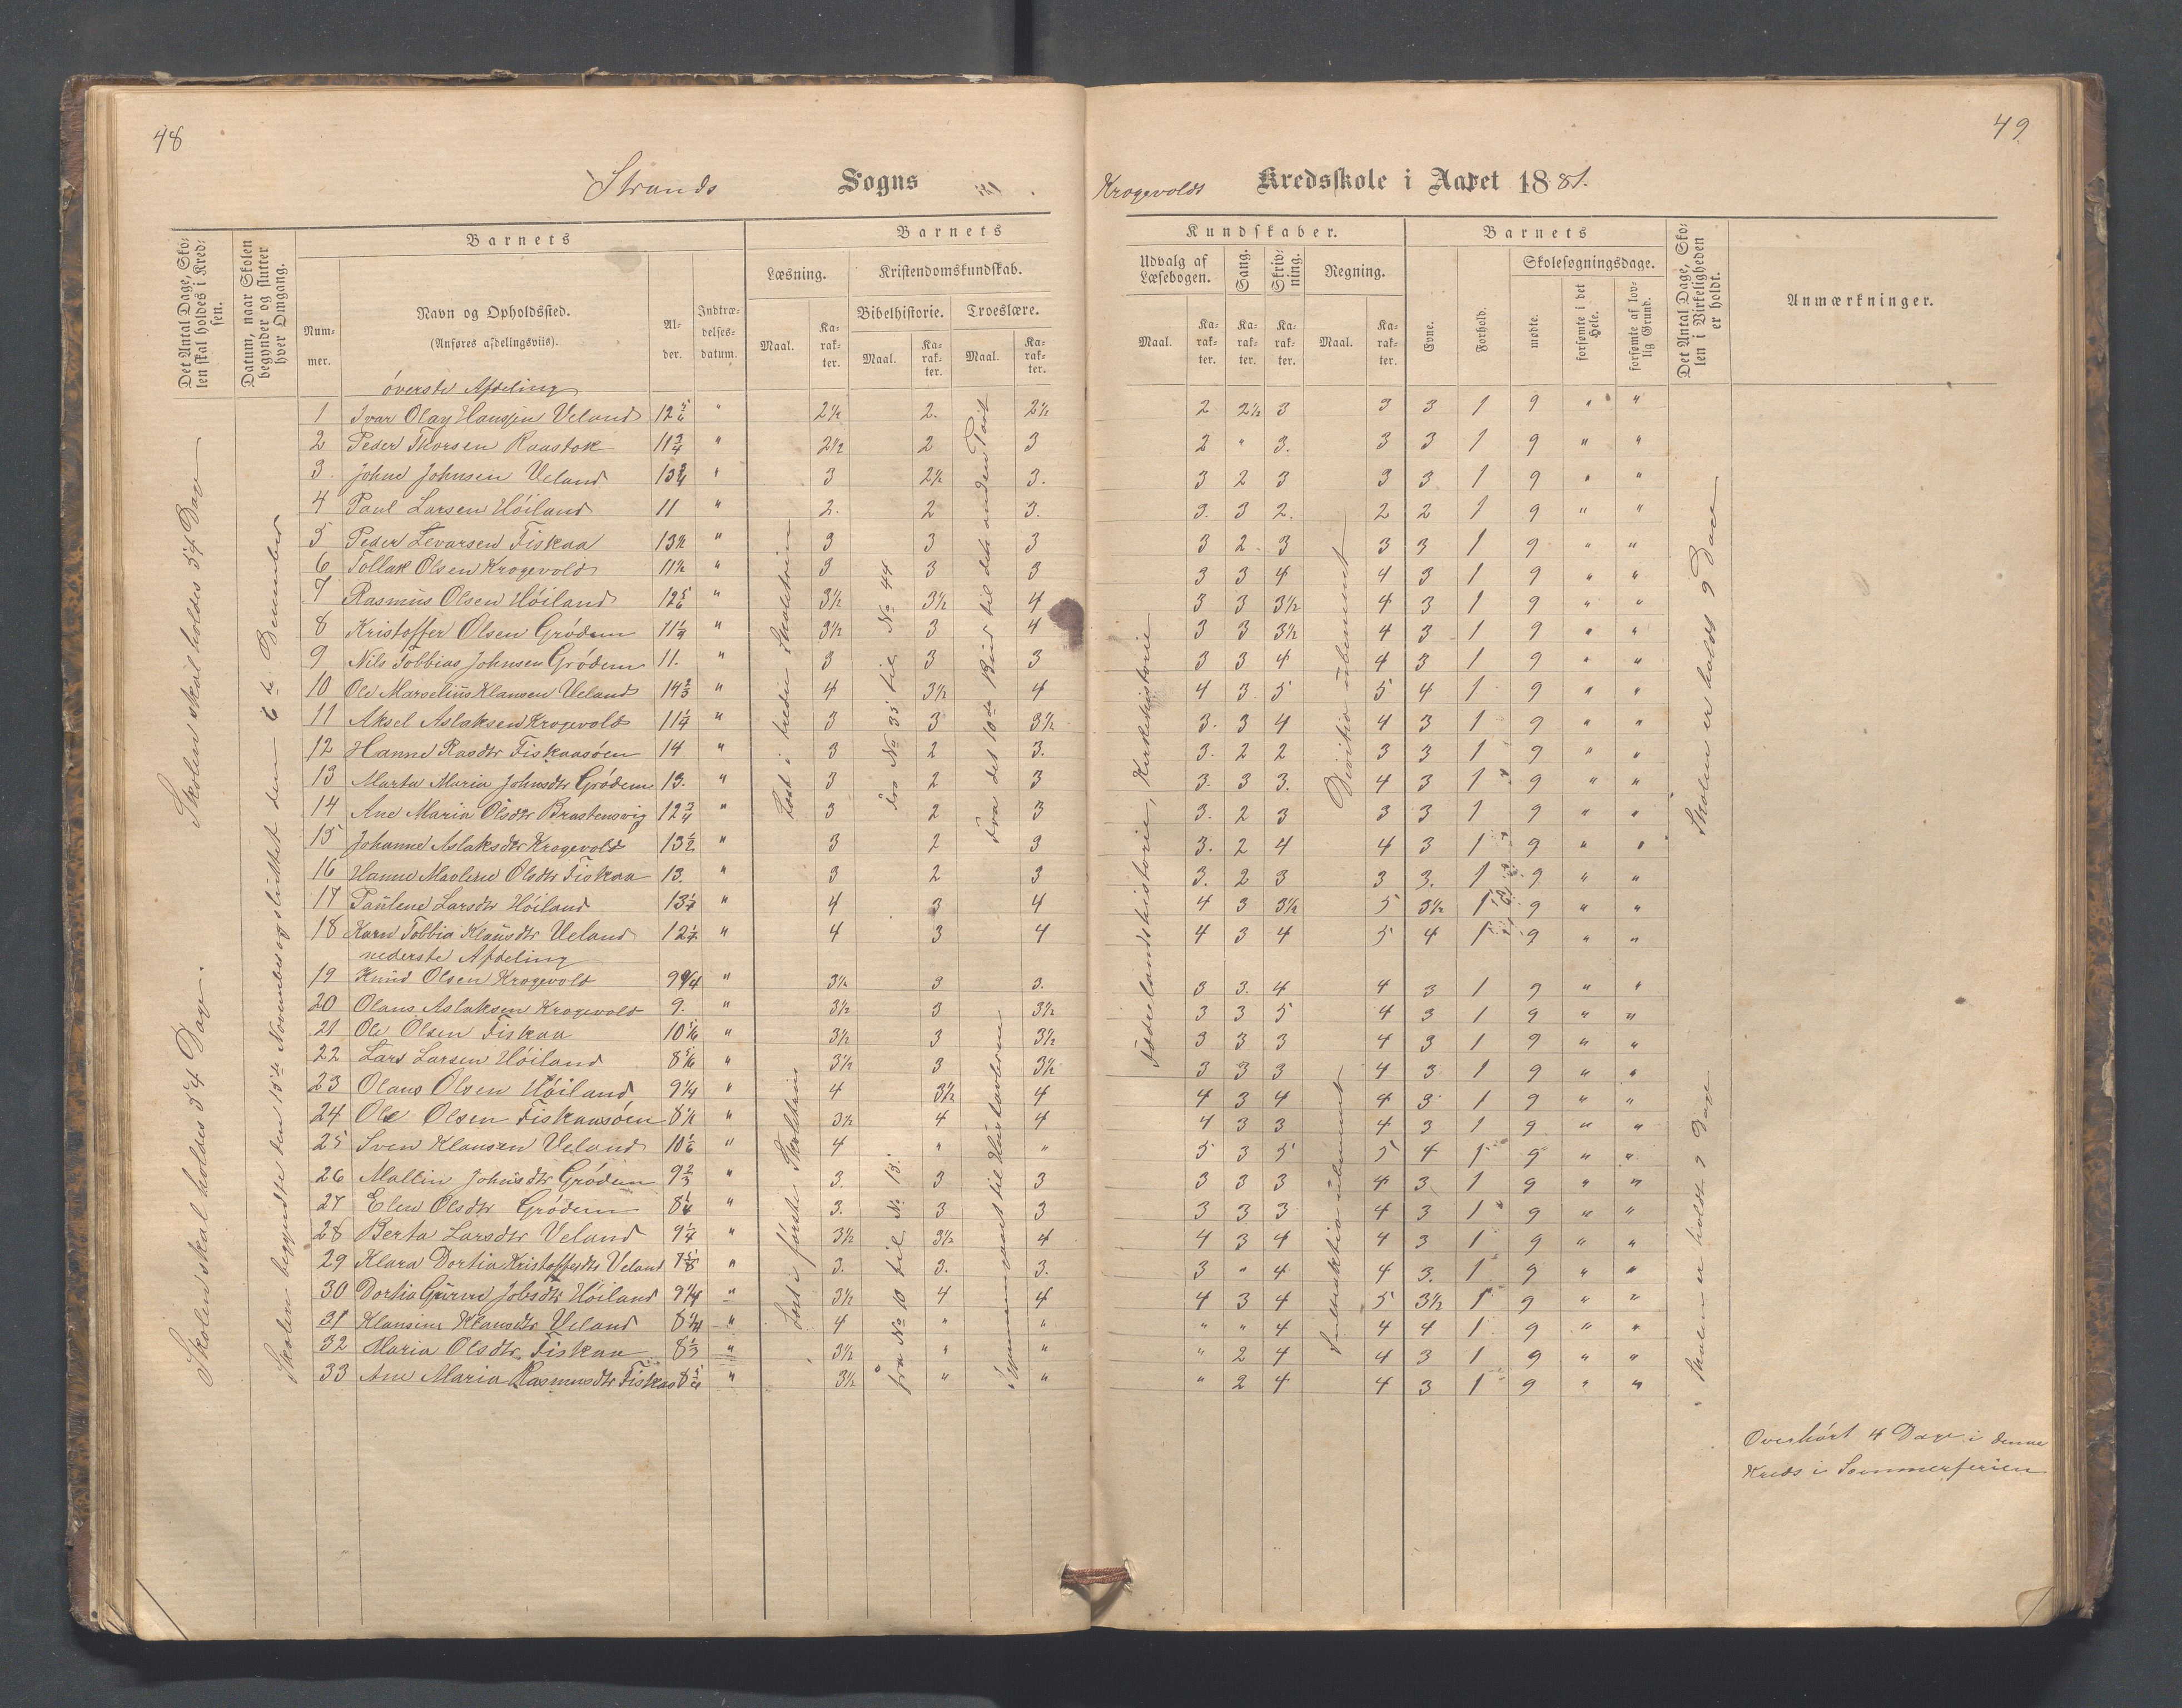 48
49
Strands Sogns Krogevolds Kredsskole i Aaret 1881.
Det Antal Dage, Skolen skal holdes i Kredsen.
Datum, naar Skolen begynder og slutter hver Omgang.
Barnets
Nummer.
Navn og Opholdssted.
(Anføres afdelingsviis).
Alder.
Indtrædelsesdatum.
Barnets
Læsning.
Maal.
Karakter.
Kristendomskundskab.
Bibelhistorie.
Maal.
Karakter.
Troeslære.
Maal.
Karakter.
Kundskaber.
Udvalg af Læsebogen.
Maal.
Karakter.
Sang.
Karakter.
Skrivning.
Karakter.
Regning.
Maal.
Karakter.
Barnets
Evne.
Forhold.
Skolesøgningsdage.
mødte.
forsømte i det Hele.
forsømte af lovlig Grund.
Det Antal Dage, Skolen i Virkeligheden er holdt.
Anmærkninger.
Skolen skal holdes 54 Dage
Skolen skal holdes 54 Dage.
Skolen begyndte den 15de November og sluttet den 6te December
øverste Afdeling
1 Ivar Olay Hansen Veland 12 5/6 " 2½ 2. 2½ 2 2½ 3 3 3 1 9 " "
2 Peder Thorsen Raustok 11 3/4 " 2½ 2 3 2 " 3. 3 3 1 9 " "
3. Johne Johnsen Veland 13 3/4 " 3 2½ 3. 3 2 3 3 3 1 9 " "
4 Paul Larsen Høiland 11 " 2. 2 3. 3. 3 2. 2 2 1 9 " "
5 Peder Levarsen Fiskaa 13½ " 3 3 3 3 2 3 3 3 1 9 " "
6 Tollak Olsen Krogevold 11½ " 3 3 3 3 3 4 4 3 1 9 " "
7 Rasmus Olsen Høiland 12 5/6 " 3½ 3½ 4 3 3 3½ 4 3 1 9 " "
8 Kristoffer Olsen Grødem 11 1/4 " 3½ 3 4 3 3 3½ 4 3 1 9 " "
9 Nils Tobbias Johnsen Grødem 11. " 3 3 3 3 3 4 4 3 1 9 " "
10 Ole Marselius Klausen Veland 14 2/3 " 4 3½ 4 4 3 5 5 4 1 9 " "
11 Aksel Aslaksen Krogevold 11 1/4 " 3 3 3½ 3. 3 4 4 3 1 9 " "
12 Hanne Rasdtr Fiskaasøen 14 " 3 2 3. 3. 2 2 3 3 1 9 " "
13 Marta Maria Johnsdtr Grødem 13. " 3 2 3 3. 3 3. 4 3 1 9 " "
14 Ane Maria Olsdtr Brastenvig 12 3/4 " 3 2 3 3. 2 3 3 3 1 9 " "
15 Johanne Aslaksdtr Krogevold 13 1/2 " 3 2 3 3. 2 4 4 3 1 9 " "
16 Hanne Marlene Olsdtr Fiskaa 13. " 3 2 3 3. 2 3 3 3. 1 9 " "
17 Paulene Larsdtr Høiland 13 1/4 " 4 3 4 4 3 3½ 5 3½ 1 9 " "
18 Karn Tobbia Klausdtr Veland 12 1/4 " 4 3 4 4 3 4 5 4 1 9 " "
nederste Afdeling
19 Knud Olsen Krogevold 9 3/4 " 3½ 3 3. 3 3. 4 4 3 1 9 " "
20 Olaus Aslaksen Krogevold 9. " 3½ 3 3½ 3 3 5 4 3 1 9 " "
21 Ole Olsen Fiskaa 10 5/6 " 3½ 3 3½ 3 3 3 4 3 1 9 " "
22 Lars Larsen Høiland 8 5/6 " 3½ 3 3½ 3 3 3 4 3 1 9 " "
23 Olaus Olsen Høiland 9 1/4 " 4 3½ 4 4 3 4 4 3 1 9 " "
24 Ole Olsen Fiskaasøen 8½ " 3½ 4 4 4 3 3 4 3 1 9 " "
25 Sven Klausen Veland 10 1/6 " 4 " " 5 3 5 5 4 1 9 " "
26 Mallin Johnsdtr Grødem 9 2/3 " 3. 3 3 3 3 3 4 3 1 9 " "
27 Elen Olsdtr Grødem 8 1/4 " 3. 3 3 3 3 3 4 3 1 9 " "
28 Berta Larsdtr Veland 9 1/4 " 3½ 3½ 4 4 3 4 4 3 1 9 " "
29 Klara Dortia Kristoffersdtr Veland " 3. 3. 3. 3 " 4 4 3. 1 9 " "
30 Dortia Gurine Jobsdtr Høiland 9 1/4 " 3½ 4 4 4 3 4 5 3½ 1 9 " "
31 Klausine Klausdtr Veland 8 1/4 " 4 " " " " 4 4 4 1 9 " "
32 Maria Olsdtr. Fiskaa 8 1/3 " 3½ " " " 2 4 4 3 1 9 " "
33 Ane Maria Rasmusdtr Fiskaa " 3½ " " " 2 4 4 3 1 9 " "
Læst i tredie Skoletrin
Læst i første Skoletrin
fra No 35 til No 44
fra No 10 til No 15.
fra det 10de Bud til den anden Part
igjennemgaaet til Hustavlerne
Fædrelandshistorie, Kirkehistorie
Division ubenævnt
Subtraktion ubenævnt
Skolen er holdt 9 Dage
Skolen er holdt 9 Dage
Overhørt 4 Dage i denne
Kreds i Sommerferien